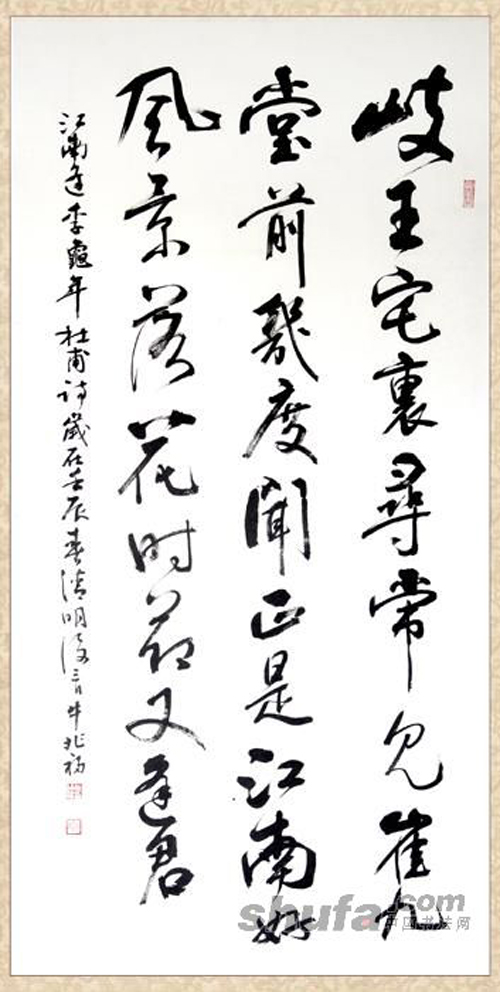 岐王宅裏尋常見崔九
堂前幾度聞正是江南好
風景落花时節又逢君
江南逢李龜年 杜甫诗 歲在壬辰春清明後三日牛兆福
shufa.com
中国书法网